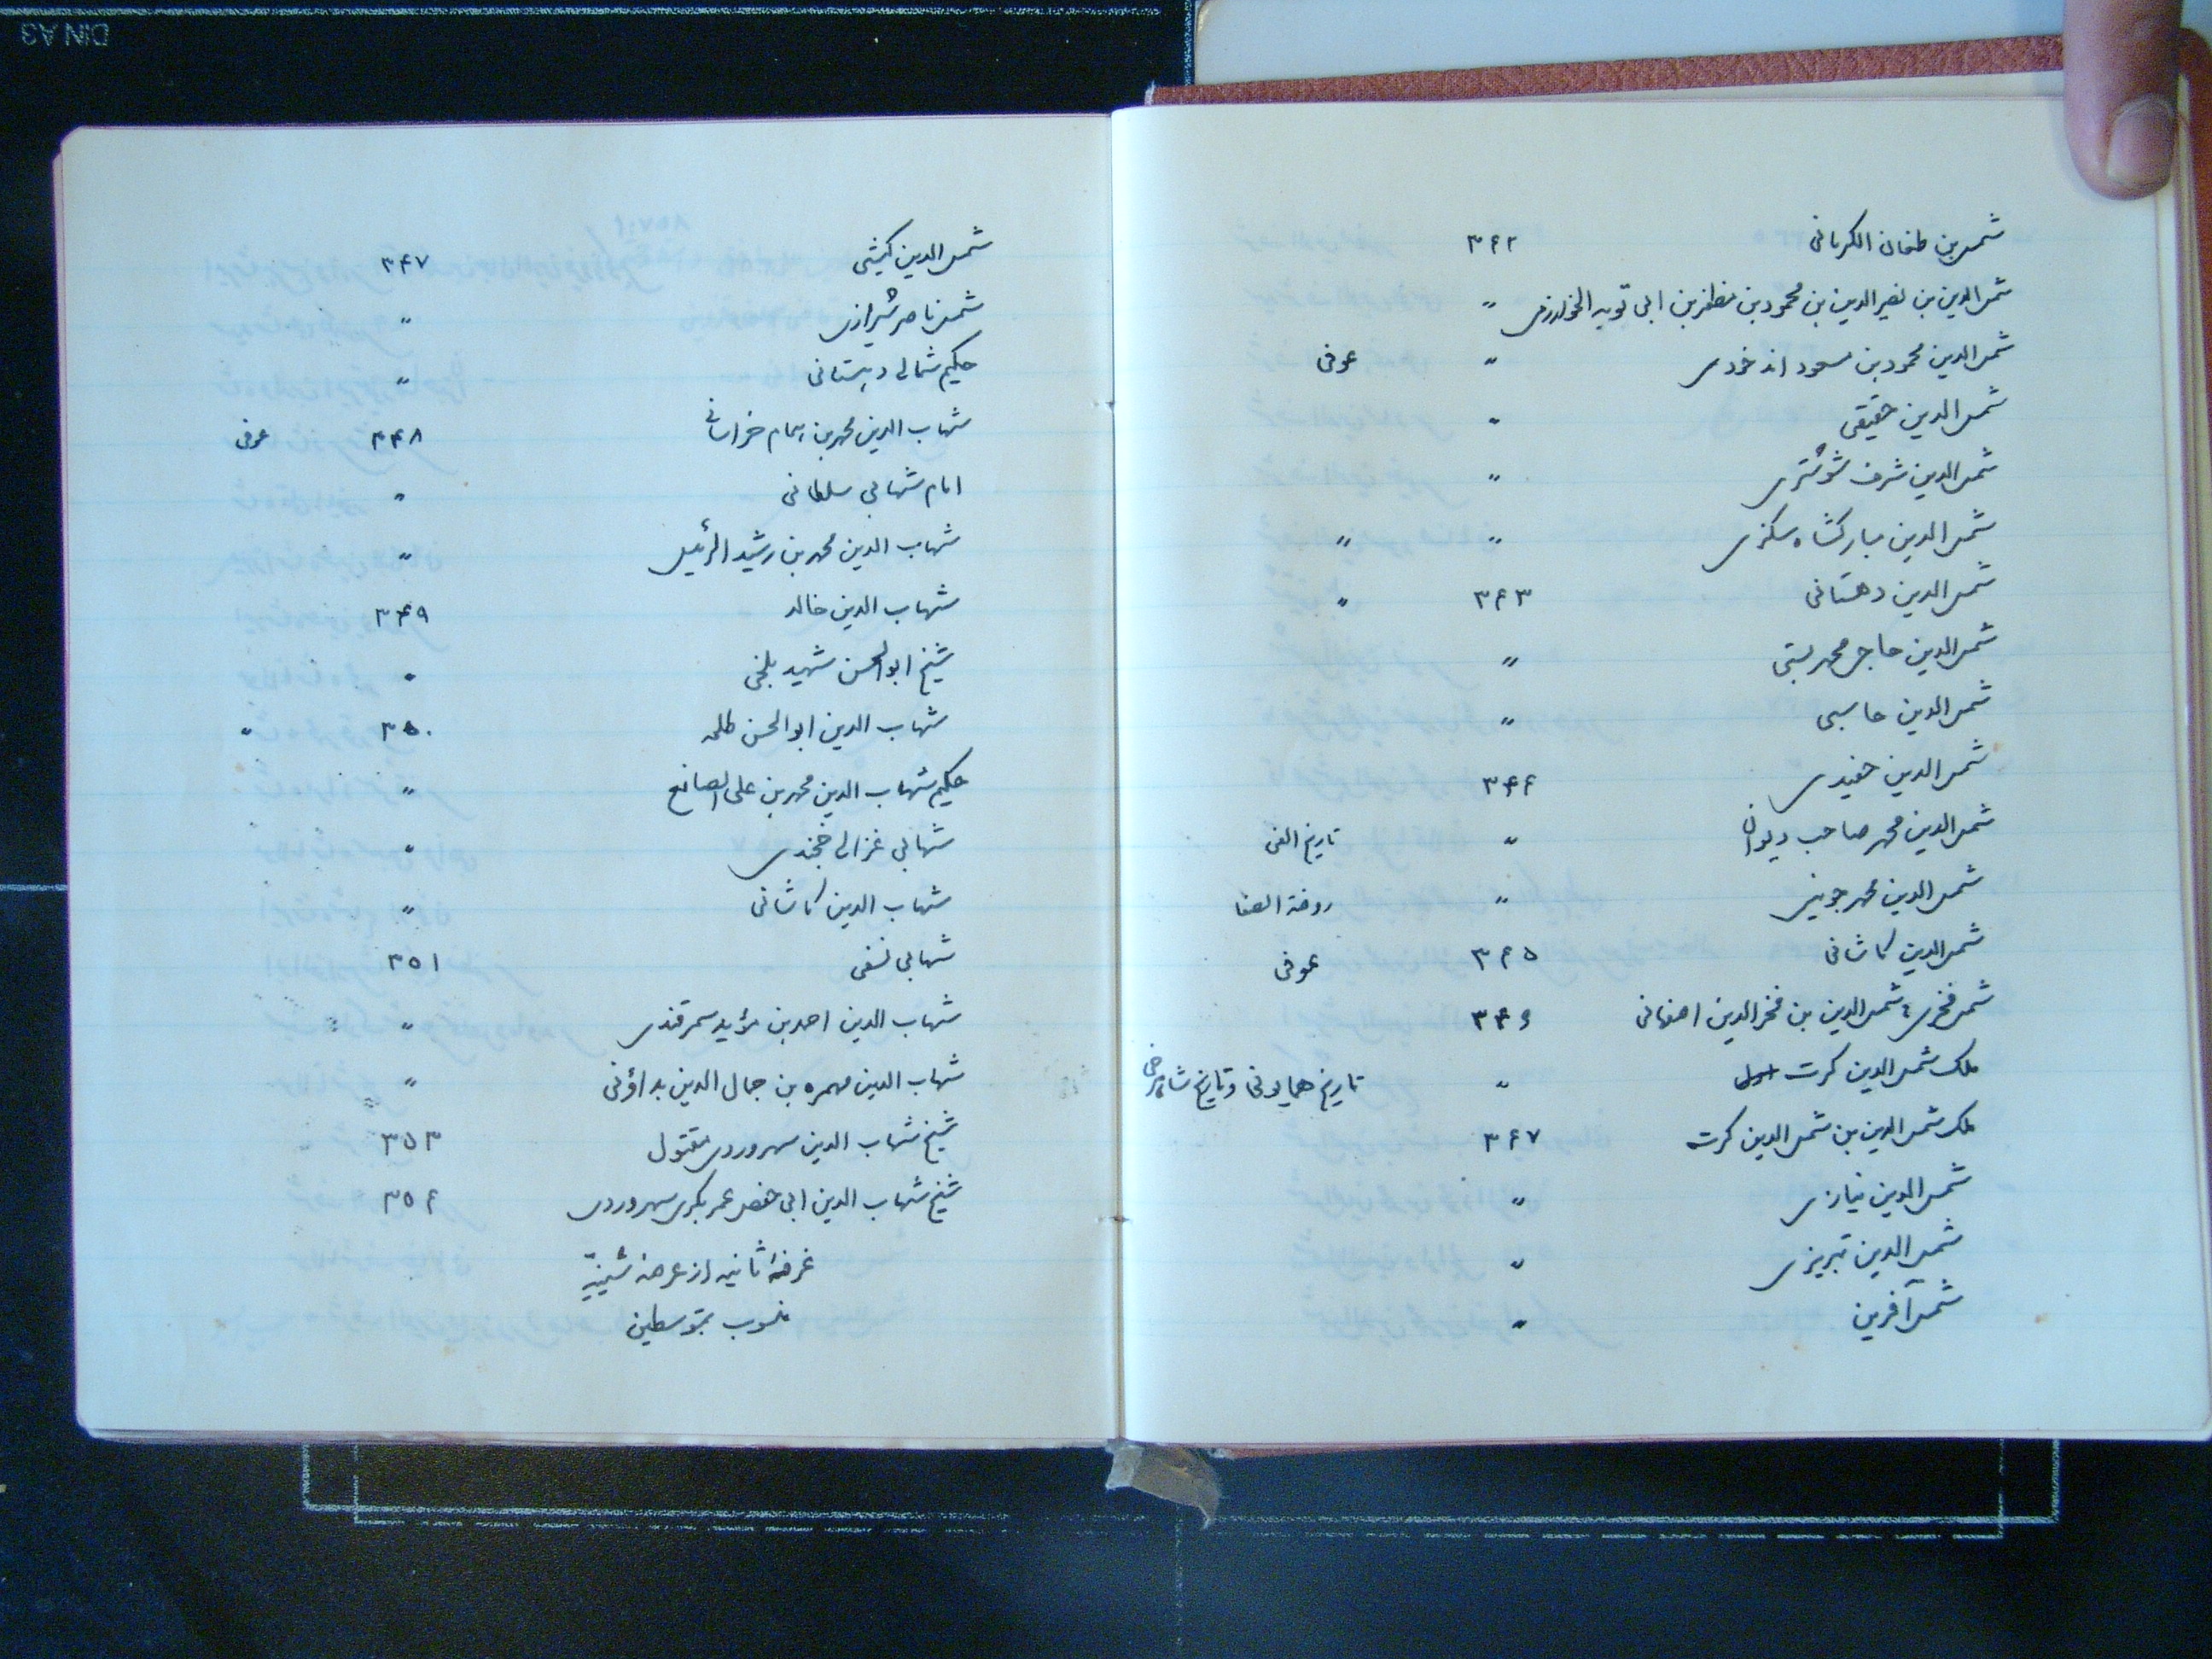 شمس بن طغان الکرمانی ۳۴۲
شمس الدین بن نصیر الدین بن محمود بن مظفر بن ابی توبه الخوارزمی "
شمس الدین محمود بن مسعود اندخودی " عوفی
شمس الدین حقیقی "
شمس الدین شرف شوشتری "
شمس الدین مبارکشاه سکزی " "
شمس الدین دهستانی ۳۴۳ "
شمس الدین حاجی محمد بستی "
شمس الدین حاسبی "
شمس الدین جنیدی ۳۴۴
شمس الدین محمد صاحب دیوان " تاریخ الفی
شمس الدین محمد جوینی " روضة الصفا
شمس الدین کاشانی ۳۴۵ عوفی
شمس فخری شمس الدین بن فخر الدین اصفهانی ۳۴۶
ملک شمس الدین کرت اول " تاریخ همایونی و تاریخ شاهرخی
ملک شمس الدین بن شمس الدین کرت ۳۴۷
شمس الدین نیازی "
شمس الدین تبریزی "
شمس آفرین "
شمس الدین کیشی ۳۴۷
شمس ناصر شیرازی "
حکیم شمالی دهستانی "
شهاب الدین محمد بن همام خراسانی ۳۴۸ عوفی
امام شهابی سلطانی "
شهاب الدین محمد بن رشید الرئیس "
شهاب الدین خالد ۳۴۹
شیخ ابو الحسن شهید بلخی "
شهاب الدین ابو الحسن طلحه ۳۵۰ "
حکیم شهاب الدین محمد بن علی الصانع "
شهابی غزال خجندی "
شهاب الدین کاشانی "
شهابی نسفی ۳۵۱
شهاب الدین احمد بن مؤید سمرقندی " "
شهاب الدین مهمره بن جمال الدین بداؤنی "
شیخ شهاب الدین سهروردی مقتول ۳۵۳
شیخ شهاب الدین ابی حفص عمر بکری سهروردی ۳۵۴
غرفۀ ثانیه از عرصۀ شینیه
منسوب بمتوسطین